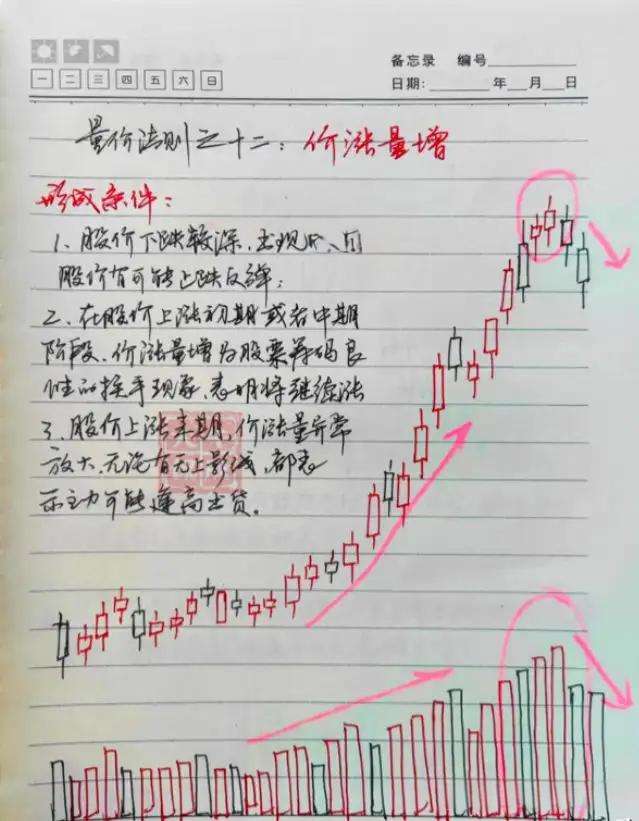 备忘录 编号
一 二 三 四 五 六 日
日期: 年 月 日
量价法则之十二：价涨量增
形成条件：
1、股价下跌较深，出现
股价有可能上跌反弹；
2、在股价上涨初期或者中期
阶段，价涨量增为股票筹码良
性的换手现象，表明将继续涨
3、股价上涨末期，价涨量异常
放大，无论有无上影线，都表
示主力可能逢高出货。